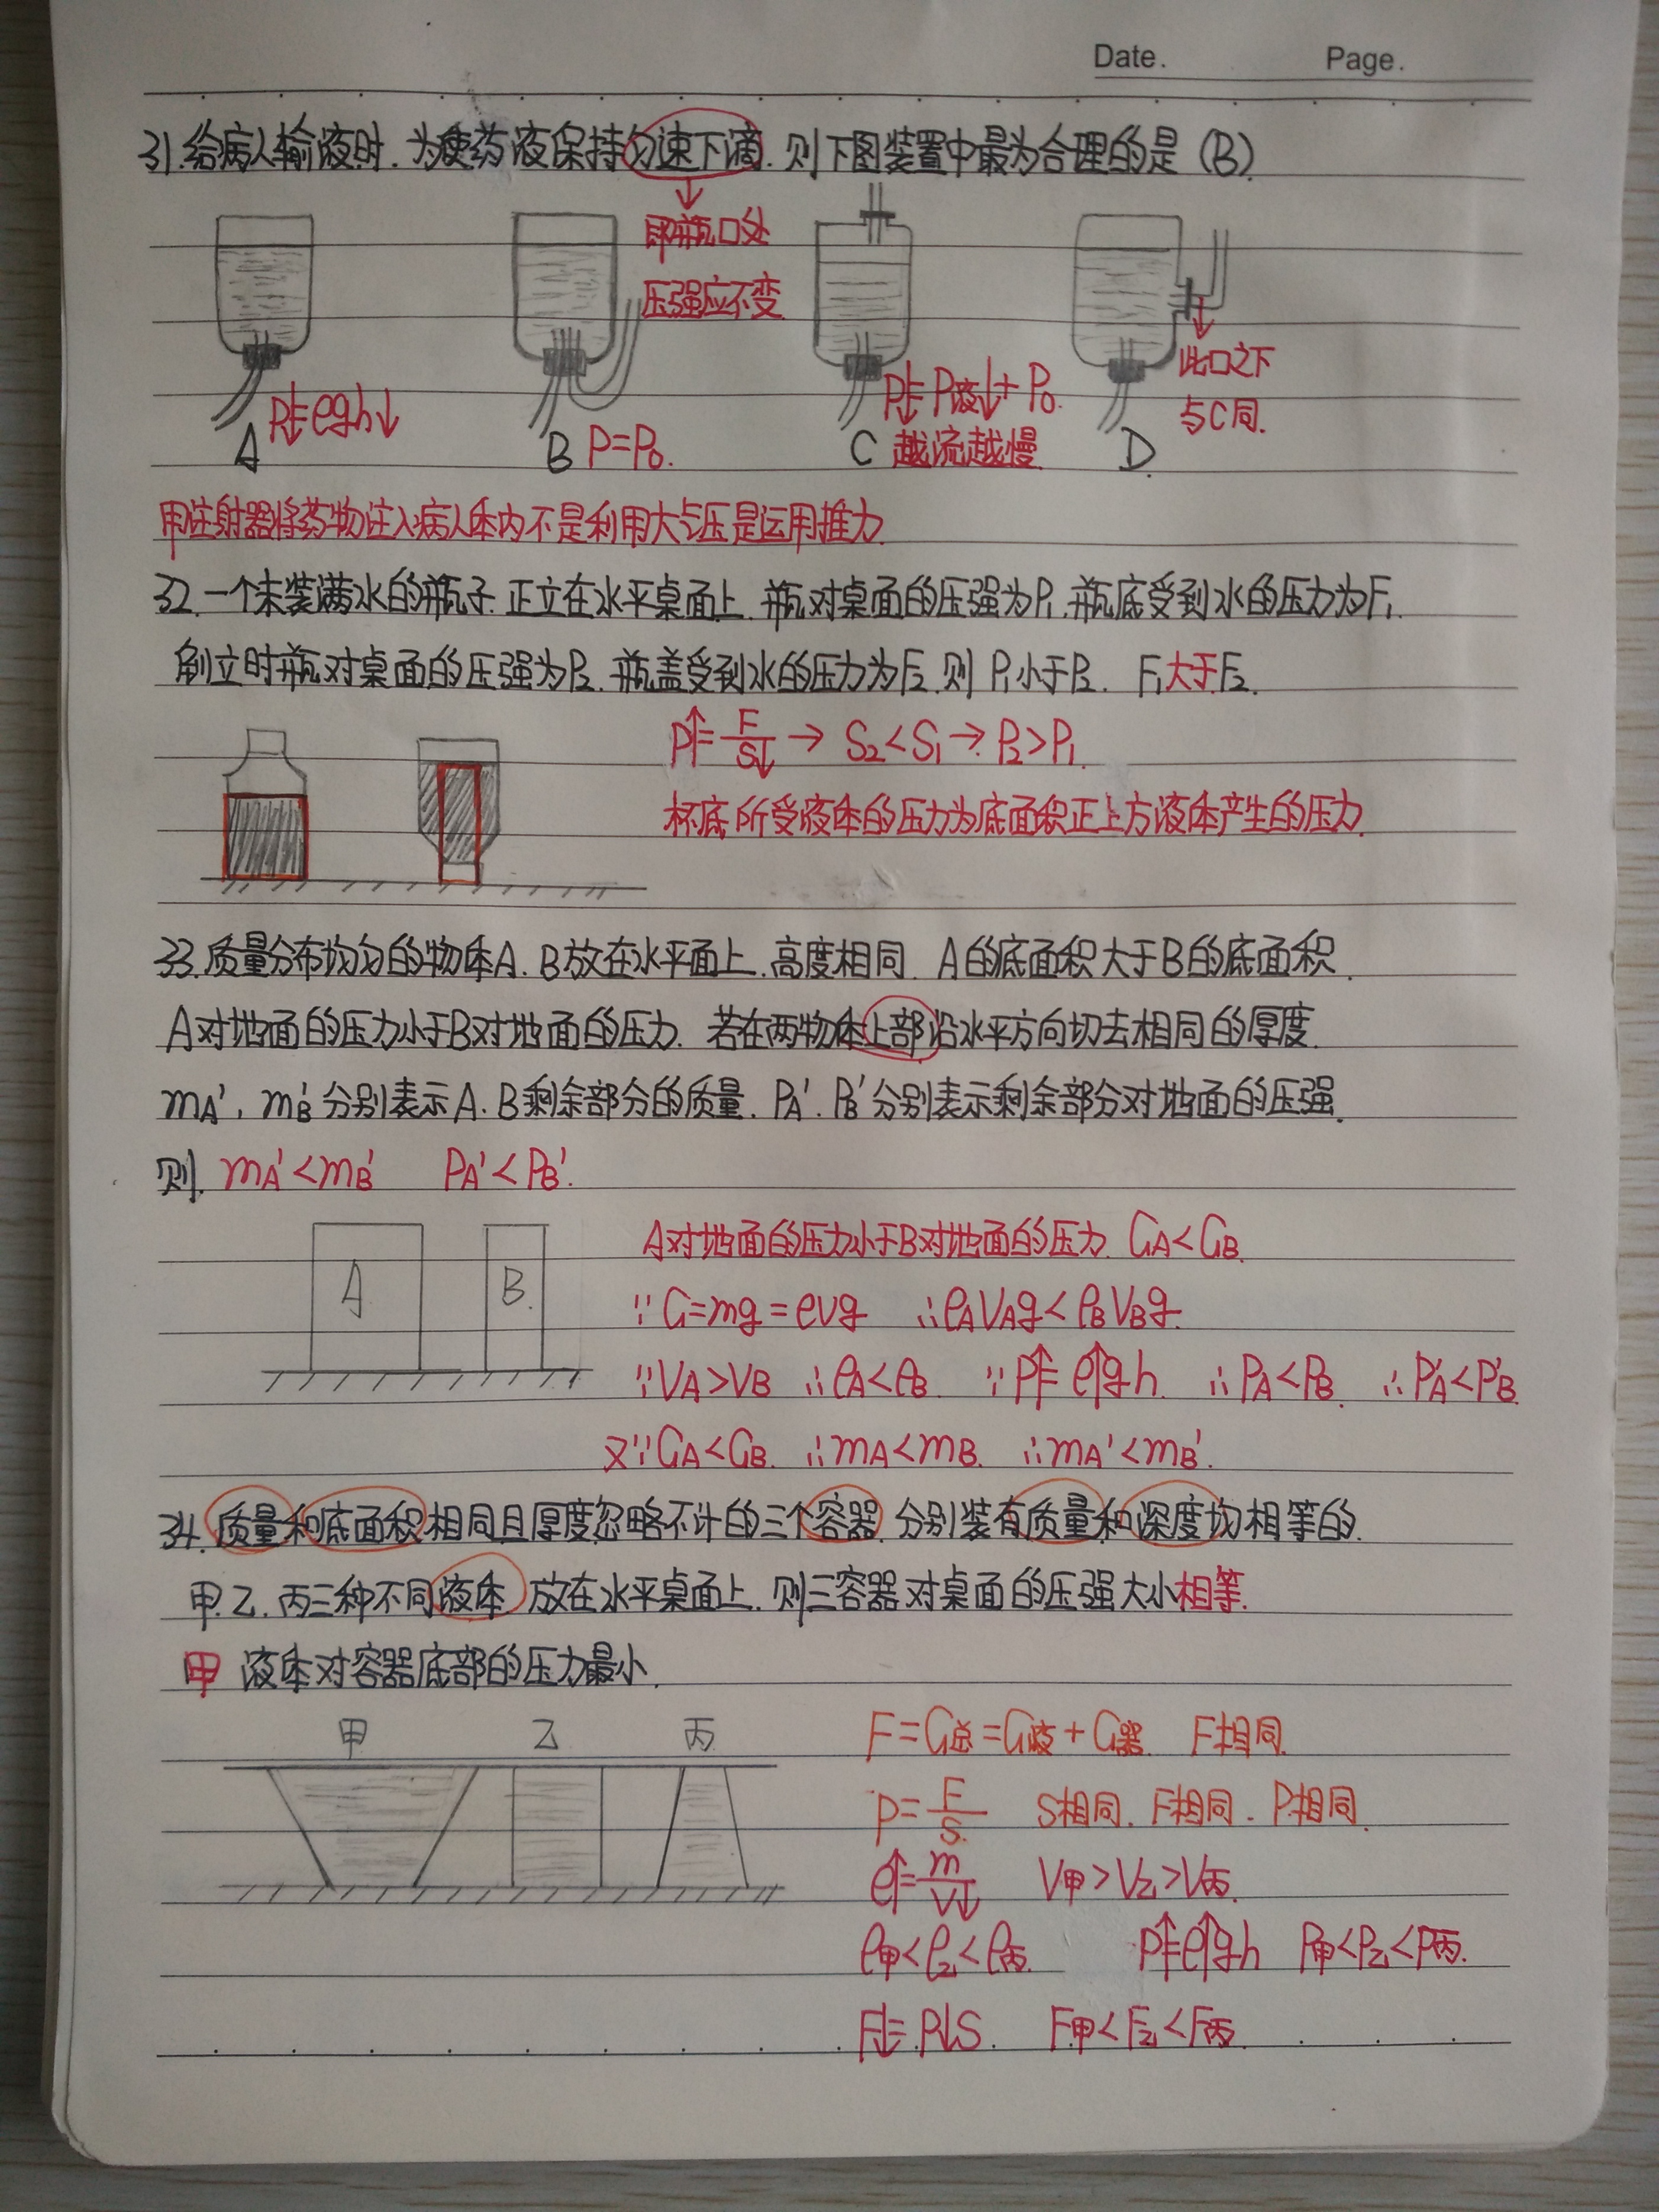 Date. Page.
31.给病人输液时.为使药液保持匀速下滴.则下图装置中最为合理的是(B)
即瓶口处
压强应不变
此口之下
与C同.
P↓=ρgh↓
P↓=P液↓+P₀.
A
B P=P₀.
C 越流越慢
D.
用注射器将药物注入病人体内不是利用大气压是运用推力.
32.一个未装满水的瓶子.正立在水平桌面上.瓶对桌面的压强为P₁.瓶底受到水的压力为F₁.
倒立时瓶对桌面的压强为P₂.瓶盖受到水的压力为F₂.则P₁小于P₂. F₁大于F₂.
P↑=F/S↓→S₂<S₁→P₂>P₁.
杯底所受液体的压力为底面积正上方液体产生的压力.
33.质量分布均匀的物体A.B放在水平面上.高度相同.A的底面积大于B的底面积.
A对地面的压力小于B对地面的压力.若在两物体上部沿水平方向切去相同的厚度.
mA′、mB′分别表示A.B剩余部分的质量.PA′.PB′分别表示剩余部分对地面的压强.
则.mA′<mB′ PA′<PB′.
A对地面的压力小于B对地面的压力.GA<GB.
A
B.
∵G=mg=ρvg ∴ρAVAg<ρBVBg.
∵VA>VB ∴ρA<ρB. ∵P↑=ρ↑gh. ∴PA<PB. ∴PA′<PB′.
又∵GA<GB. ∴mA<mB. ∴mA′<mB′.
34.质量和底面积相同且厚度忽略不计的三个容器.分别装有质量和深度均相等的.
甲.乙.丙三种不同液体.放在水平桌面上.则三容器对桌面的压强大小相等.
甲液体对容器底部的压力最小.
甲 乙 丙
F=G总=G液+G器. F相同.
P=F/S. S相同.F相同.P相同.
ρ↑=m/V↓ V甲>V乙>V丙.
ρ甲<ρ乙<ρ丙. P↑=ρ↑gh P甲<P乙<P丙.
F↓=P↓S. F甲<F乙<F丙.